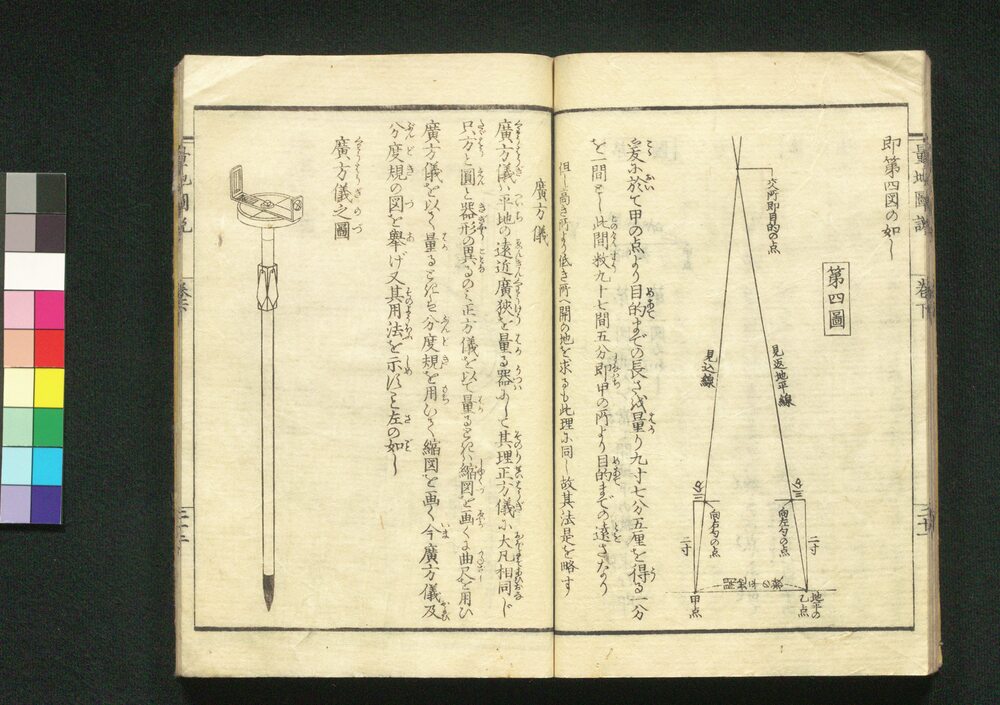 量地圖説
巻下
即第四図の如し
第四圖
交所即目的の点
見返地平線
見込線
勾三
勾三
向左勾の点
向右勾の点
二寸
二寸
地平の
乙点
甲点
爰に於て甲の点より目的までの長さを量り九寸七分五厘を得る一分
を一間とし此間数九十七間五分即甲の所より目的までの遠さなり
但し高き所より低き所へ開の地を求るも此理に同し故其法是を略す
廣方儀
廣方儀ハ平地の遠近廣狭を量る器にして其理正方儀に大凡相同じ
只方と圓と器形の異るのミ正方儀を以て量るときハ縮図を画くに曲尺を用ひ
廣方儀を以て量るときハ分度規を用ひて縮図を画く今廣方儀及
分度規の図を擧げ又其用法を示すこと左の如し
廣方儀之圖